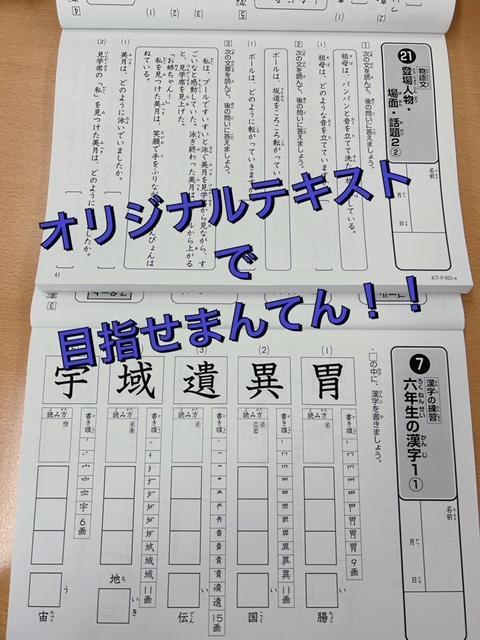 オリジナルテキスト
で
目指せまんてん！！
21
物語文
登場人物・
場面・話題2②
名前
月 日
1 次の文を読んで、後の問いに答えましょう。
(1) 祖母は、どのような音を立てています
2 次の文を読んで、後の問いに答えましょう。
ボールは、坂道をころころ転がってい
(1) ボールは、どのように転がっていきま
3 次の文章を読んで、後の問いに答えましょう。
私は、プールですいすいと泳ぐ美月を見学
から見ながら、す
ごいなと感動していた。泳ぎ終わった美月
ルから上がる
と、見学席を見上げた。
「お姉ちゃん！」
私を見つけた美月は、笑顔で手をふりな
んぴょんは
ねている。
(1) 美月は、どのように泳いでいましたか。
(2) 見学席の「私」を見つけた美月は、どのように
したか。
41
KT-P-021-a
7
漢字の練習
六年生の漢字1①
名前
月 日
●□の中に、漢字を書きましょう。
(1)
胃
読み方
イ
書き順
9画
腸
(2)
異
読み方
イ
こと
書き順
11画
国
(3)
遺
読み方
イ
書き順
15画
伝
域
読み方
イキ
書き順
11画
地
宇
読み方
ウ
書き順
6画
宙